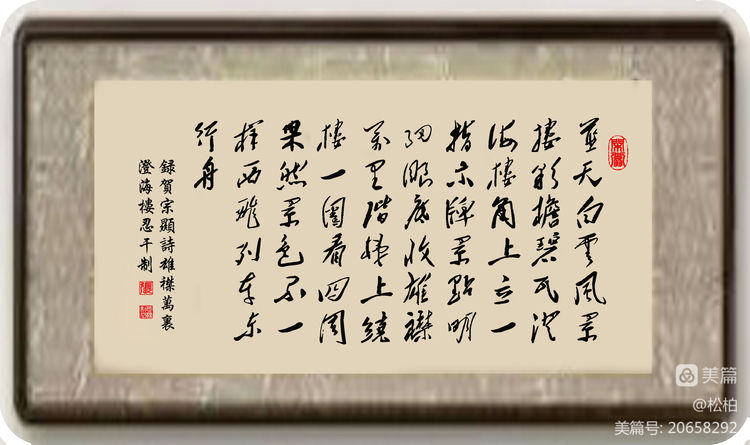 蓝天白雲風景
樓彩檐碧瓦澄
海樓角上立一
指示牌景點明
细眼底收雄襟
萬里階梯上繞
樓一圍看四周
果然景色不一
樣西飛列車东
行舟
録賀宗顯詩雄襟萬裏
澄海樓忍干制
美篇
@松柏
美篇号: 20658292